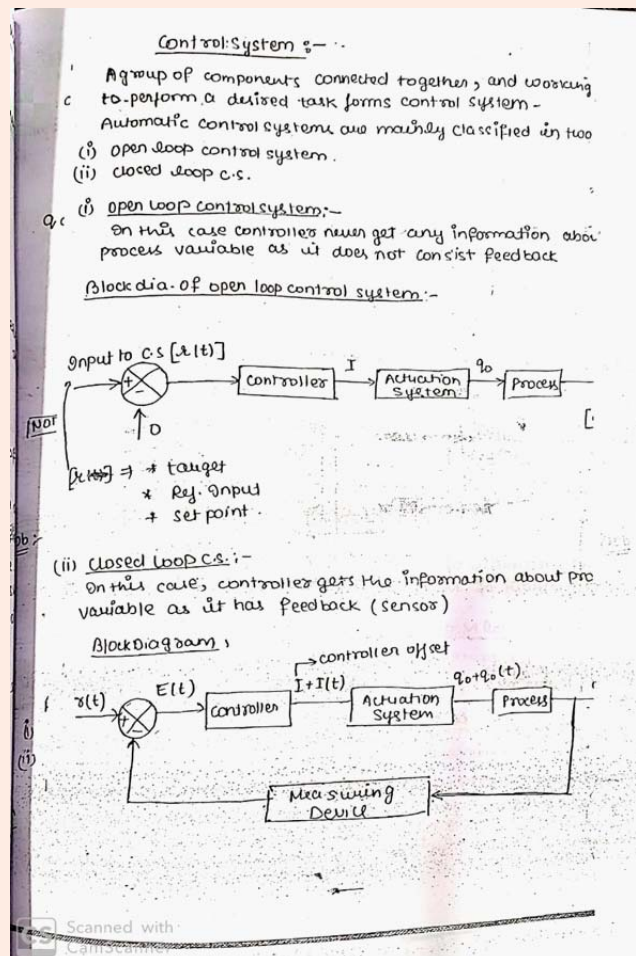 Control System :-
A group of components connected together, and working
to perform a desired task forms control system -
Automatic control systems are mainly classified in two
(i) open loop control system.
(ii) closed loop c.s.
(i) open loop control system:-
In this case controller never get any information abou
process variable as it does not consist feedback
Block dia. of open loop control system:-
Input to C.S [r(t)]
+
-
Controller
I
Actuation
System
q0
Process
0
NOT
[r(t)] ⇒ * target
* Ref. Input
* set point.
(ii) Closed loop C.S. :-
In this case, controller gets the information about pro
variable as it has feedback (sensor)
Block Diagram,
→ controller offset
r(t)
+
-
E(t)
Controller
I+I(t)
Actuation
System
q0+q0(t)
Process
Measuring
Device
(i)
(ii)
CS Scanned with
CamScanner